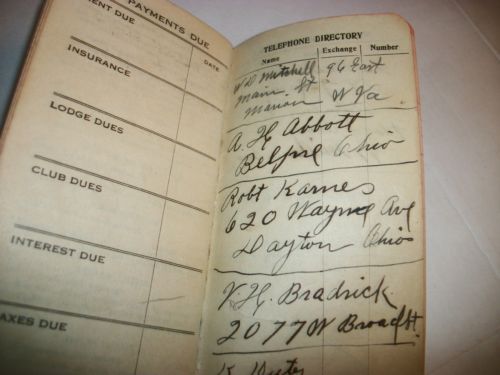 PAYMENTS DUE
ENT DUE
DATE
INSURANCE
LODGE DUES
CLUB DUES
INTEREST DUE
AXES DUE
TELEPHONE DIRECTORY
Name Exchange Number
W D Mitchell 96 East
Main St
Marion W Va.
A. H. Abbott
Belpre Ohio
Robt Karnes
620 Wayne Ave
Dayton Ohio
V. H. Bradrick
2077 W Broad St.
K